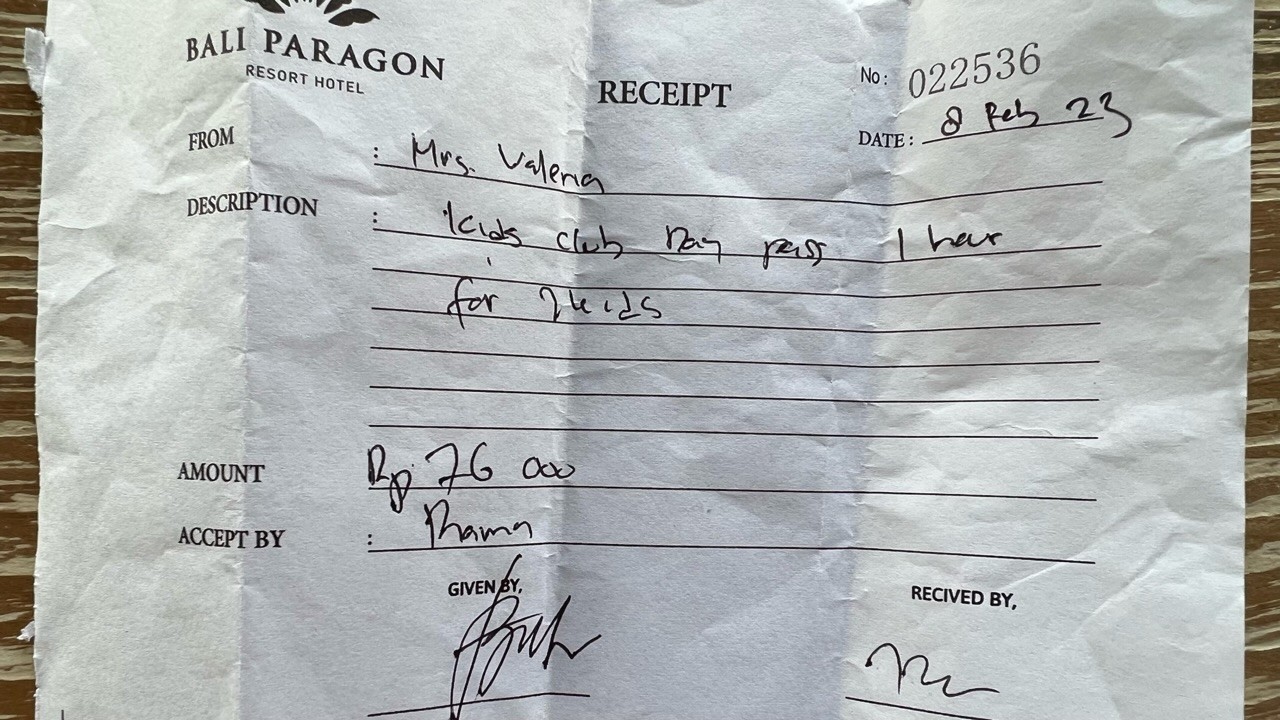 BALI PARAGON
RESORT HOTEL
RECEIPT
No: 022536
DATE: 8 Feb 23
FROM : Mrs. Valeria
DESCRIPTION : Kids club Day pass 1 hour
for 2 kids
AMOUNT Rp 76 000
ACCEPT BY : Prama
GIVEN BY,
RECIVED BY,